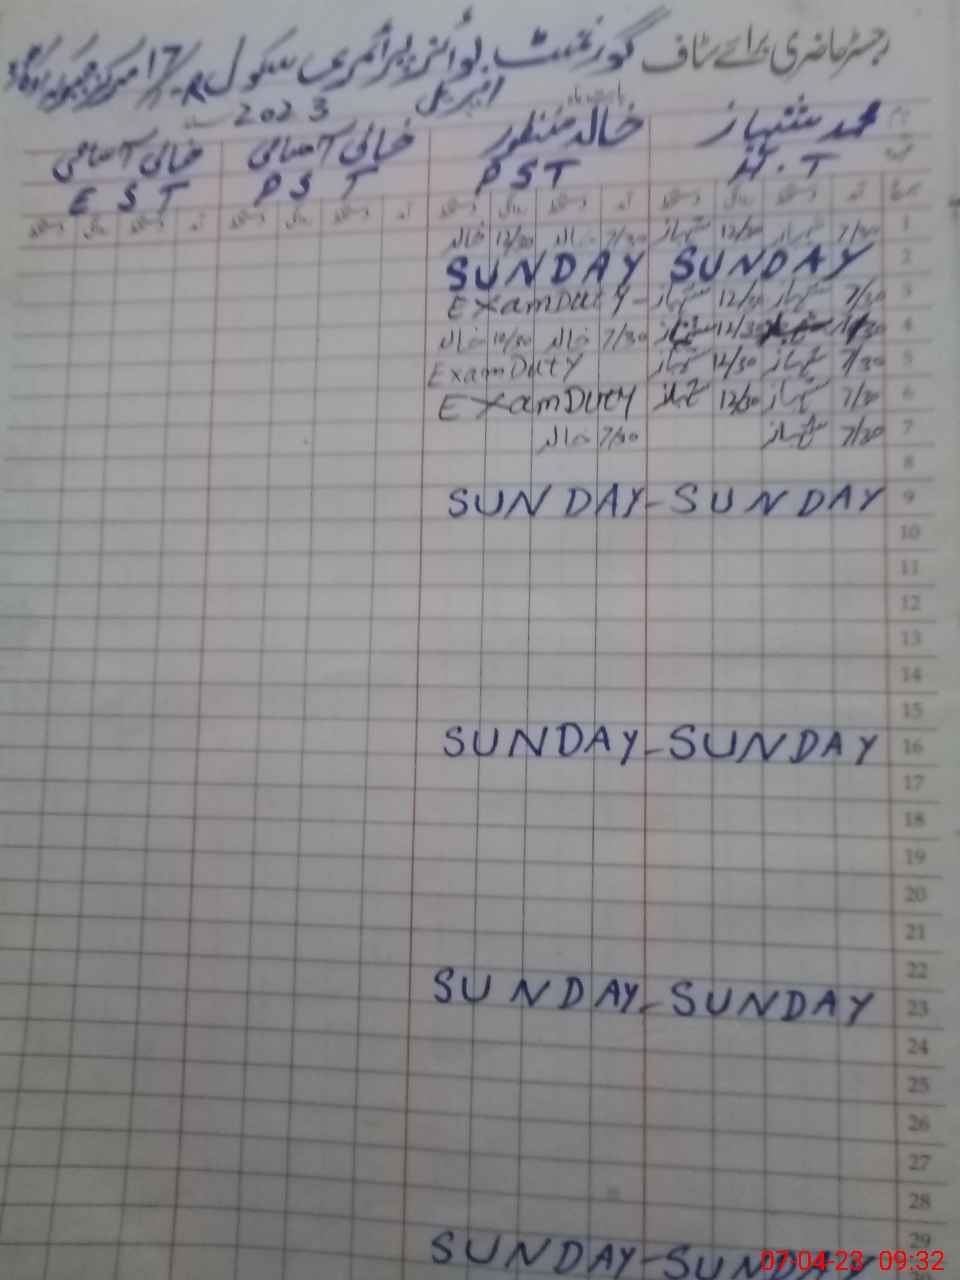 رجسٹر حاضری برائے سٹاف گورنمنٹ بوائز پرائمری سکول 17
اپریل 2023
محمد شہباز خالد منظور خالی آسامی خالی آسامی
H.T PST PST EST
1 7/30 شہباز 12/30 شہباز 7/30 خالد 12/30 خالد
2 SUNDAY SUNDAY
3 7/30 شہباز 12/30 شہباز Exam Duty
4 7/30 شہباز 12/30 شہباز 7/30 خالد 12/30 خالد
5 7/30 شہباز 12/30 شہباز Exam Duty
6 7/30 شہباز 12/30 شہباز Exam Duty
7 7/30 شہباز 7/30 خالد
8
9 SUNDAY - SUNDAY
10
11
12
13
14
15
16 SUNDAY - SUNDAY
17
18
19
20
21
22
23 SUNDAY - SUNDAY
24
25
26
27
28
29
SUNDAY - SUNDAY
07-04-23 09:32